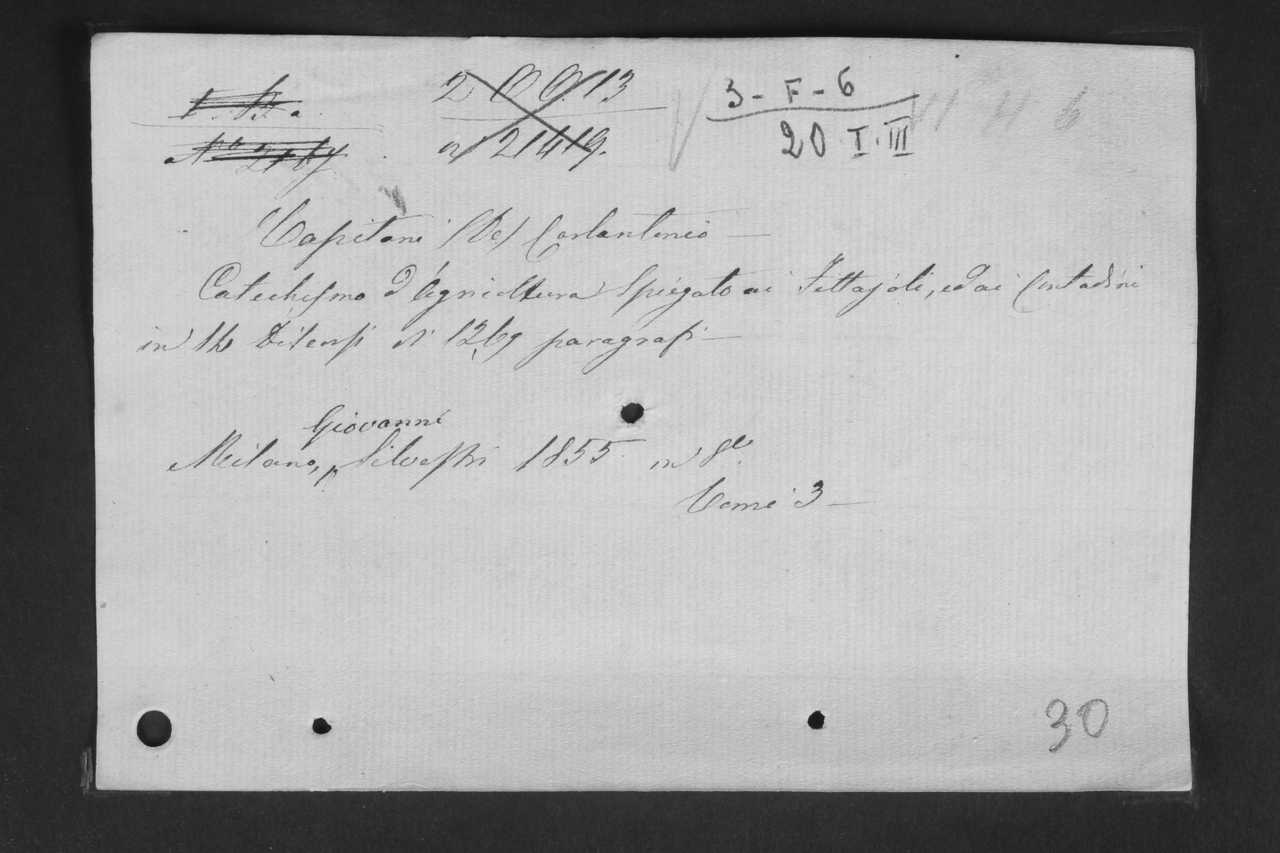 2 OO.13
n 21419.
3 - F - 6
20 I. III
H 6
Capitani (De) Carlantonio —
Catechismo d'Agricoltura Spiegato ai Fittajoli, ed ai Contadini
in 16 Discorsi e 1269 paragrafi —
Giovanni
Milano, Silvestri 1855. in 8°
Tomi 3 —
30